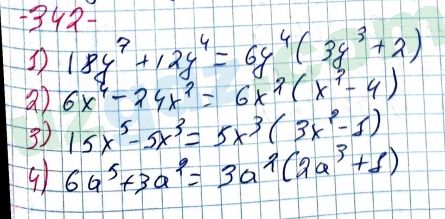 -342-
1) 18y⁷ + 12y⁴ = 6y⁴ ( 3y³ + 2)
2) 6x⁴ - 24x² = 6x² ( x² - 4)
3) 15x⁵ - 5x³ = 5x³ ( 3x² - 1)
4) 6a⁵ + 3a² = 3a² (2a³ + 1)